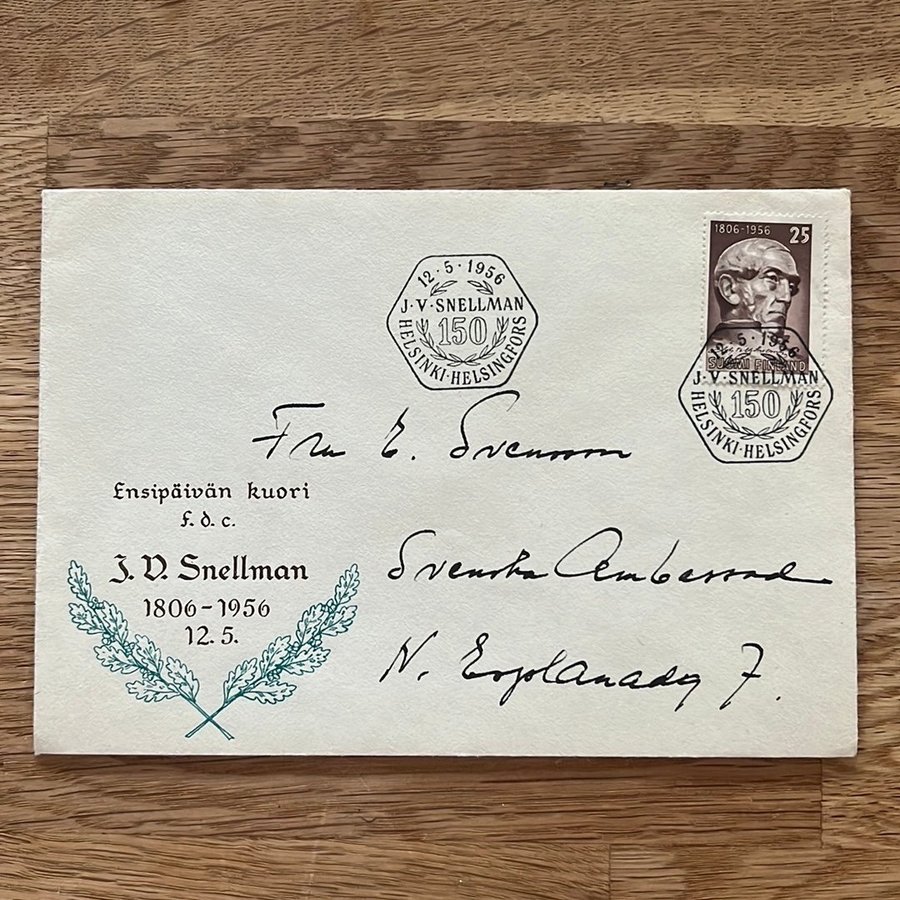 12·5·1956
J·V·SNELLMAN
150
HELSINKI·HELSINGFORS
1806-1956 25
SUOMI FINLAND
12·5·1956
J·V·SNELLMAN
150
HELSINKI·HELSINGFORS
Fru E. Svensson
Ensipäivän kuori
f. d. c.
J. V. Snellman
1806-1956
12. 5.
Svenska Ambassad
N. Esplanadg 7.